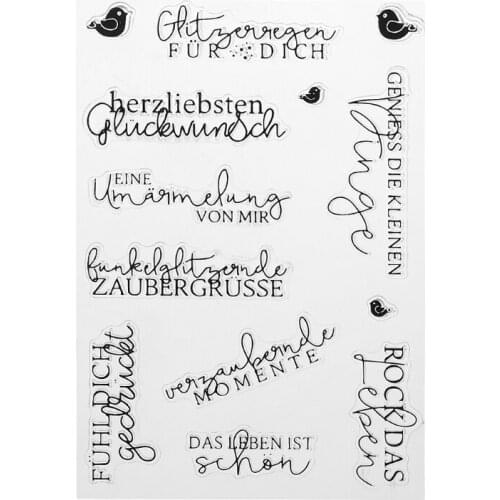 Glitzerregen
FÜR DICH
herzliebsten
Glückwunsch
EINE
Umärmelung
VON MIR
funkelglitzernde
ZAUBERGRÜSSE
GENIESS DIE KLEINEN
Dinge
FÜHL DICH
gedrückt
verzaubernde
MOMENTE
DAS LEBEN IST
schön
ROCK DAS
Leben